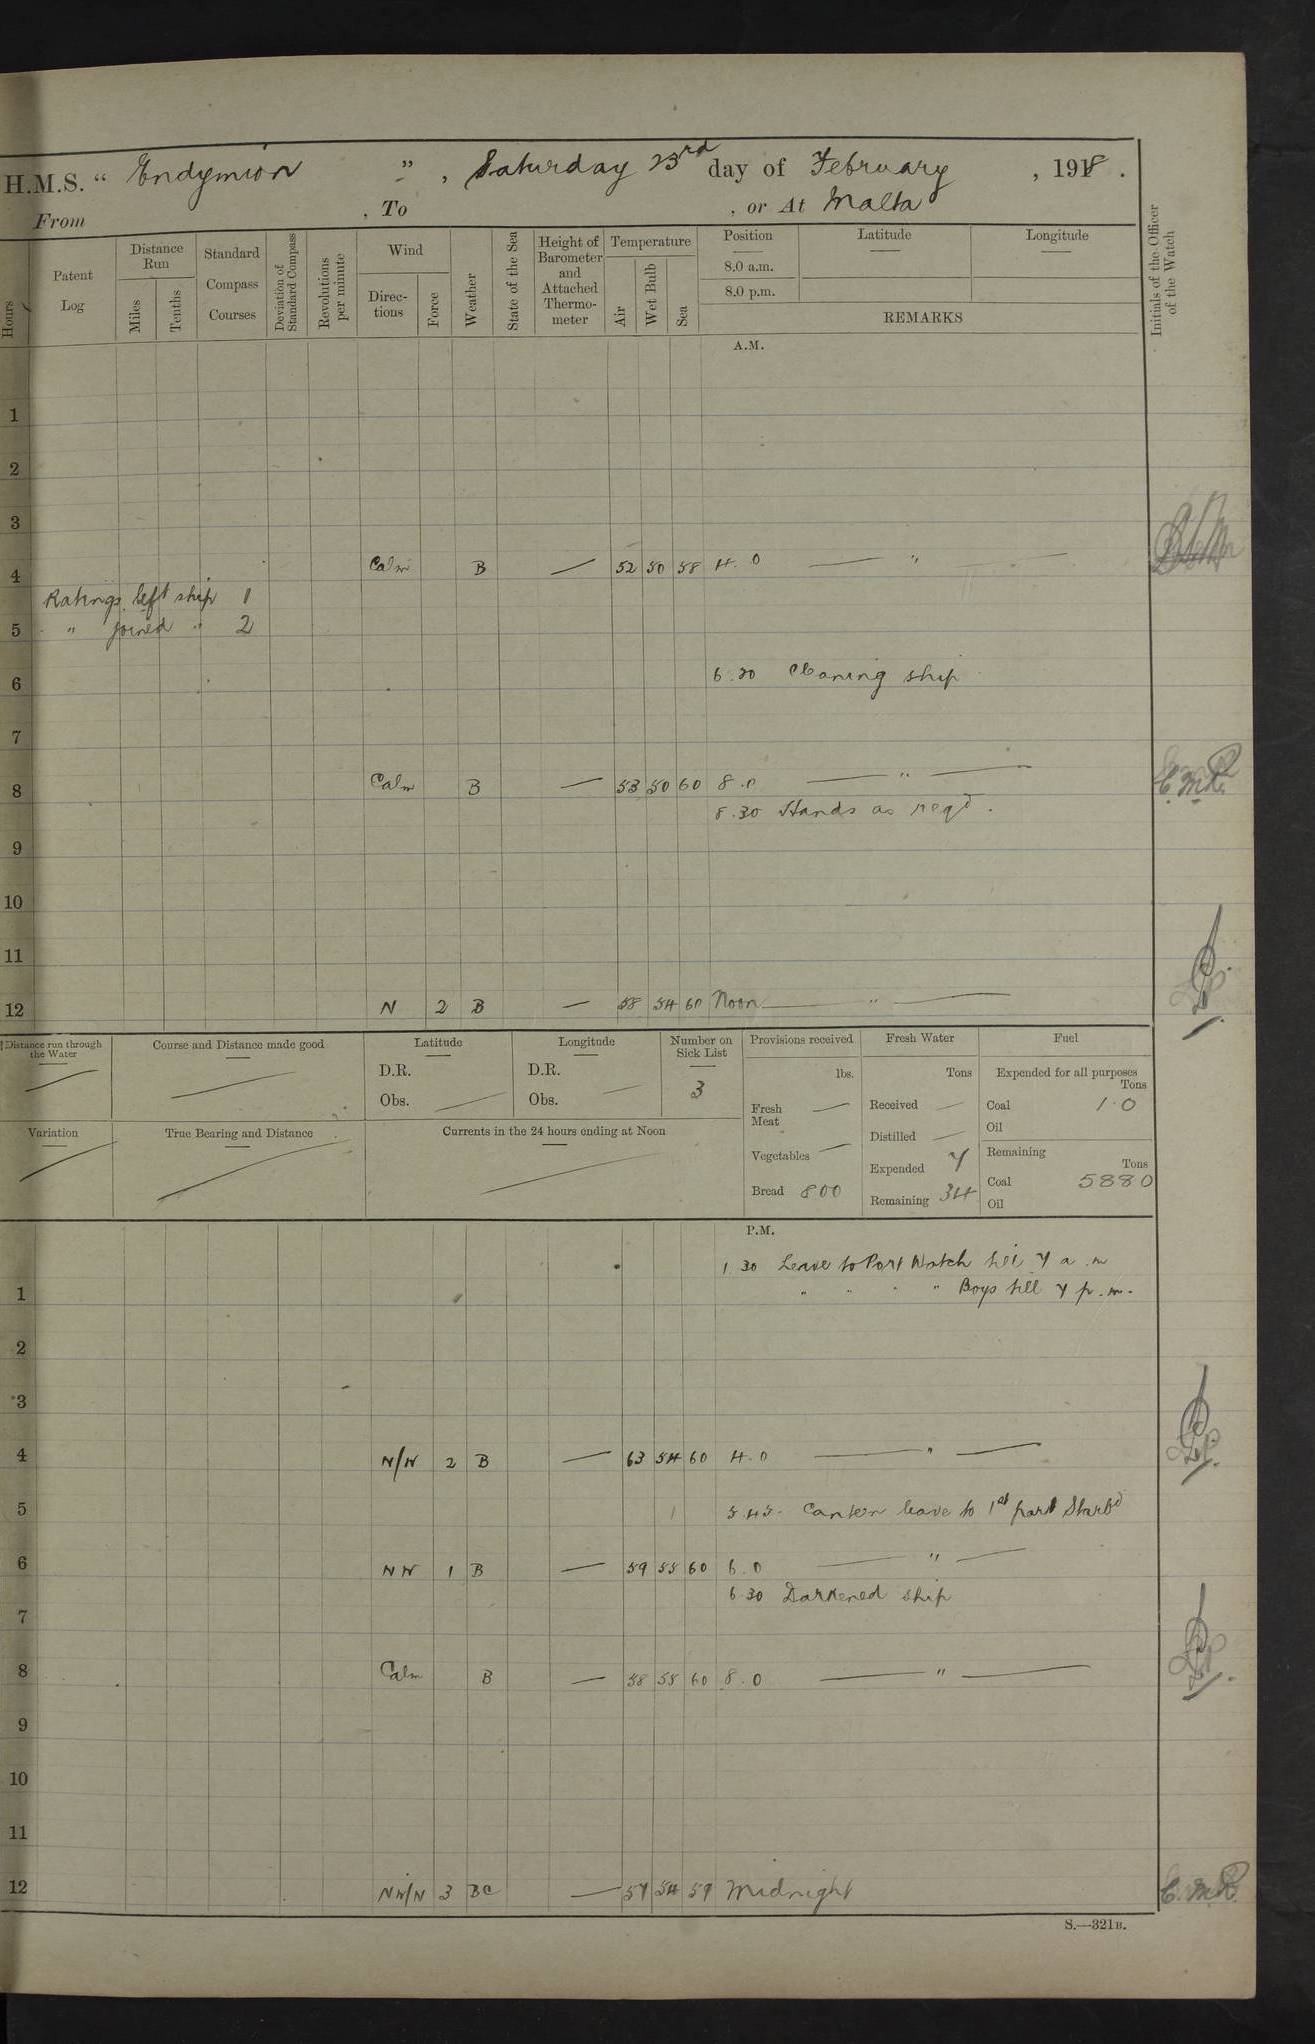 H.M.S. “ Endymion ” , Saturday 23rd day of February , 1918 .
From , To , or At Malta
Hours
Patent Log
Distance Run
Miles
Tenths
Standard Compass Courses
Deviation of Standard Compass
Revolutions per minute
Wind
Directions
Force
Weather
State of the Sea
Height of Barometer and Attached Thermometer
Temperature
Air
Wet Bulb
Sea
Position Latitude Longitude
8.0 a.m.
8.0 p.m.
REMARKS
Initials of the Officer of the Watch
A.M.
1
2
3
4 Calm B — 52 50 58 4. 0 — " —
Ratings left ship 1
5 " joined " 2
6 6.30 Cleaning ship
7
8 Calm B — 53 50 60 8.0 — " — E.M.R.
8.30 Hands as reqd.
9
10
11
12 N 2 B — 58 54 60 Noon — " —
Distance run through the Water
Course and Distance made good
Latitude
D.R.
Obs.
Longitude
D.R.
Obs.
Number on Sick List
3
Provisions received
lbs.
Fresh Meat —
Vegetables —
Bread 800
Fresh Water
Tons
Received —
Distilled —
Expended 7
Remaining 34
Fuel
Expended for all purposes
Tons
Coal 1.0
Oil
Remaining
Tons
Coal 5880
Oil
Variation
True Bearing and Distance
Currents in the 24 hours ending at Noon
P.M.
1.30 Leave to Port Watch till 7 a.m
1 " " " " Boys till 7 p.m.
2
3
4 N/W 2 B — 63 54 60 4.0 — " —
5 5.45. Canteen leave to 1st part Starbd
6 NW 1 B — 59 55 60 6.0 — " —
6.30 Darkened ship
7
8 Calm B — 58 55 60 8.0 — " —
9
10
11
12 NW/N 3 BC — 57 54 59 Midnight E.M.R.
S.—321B.